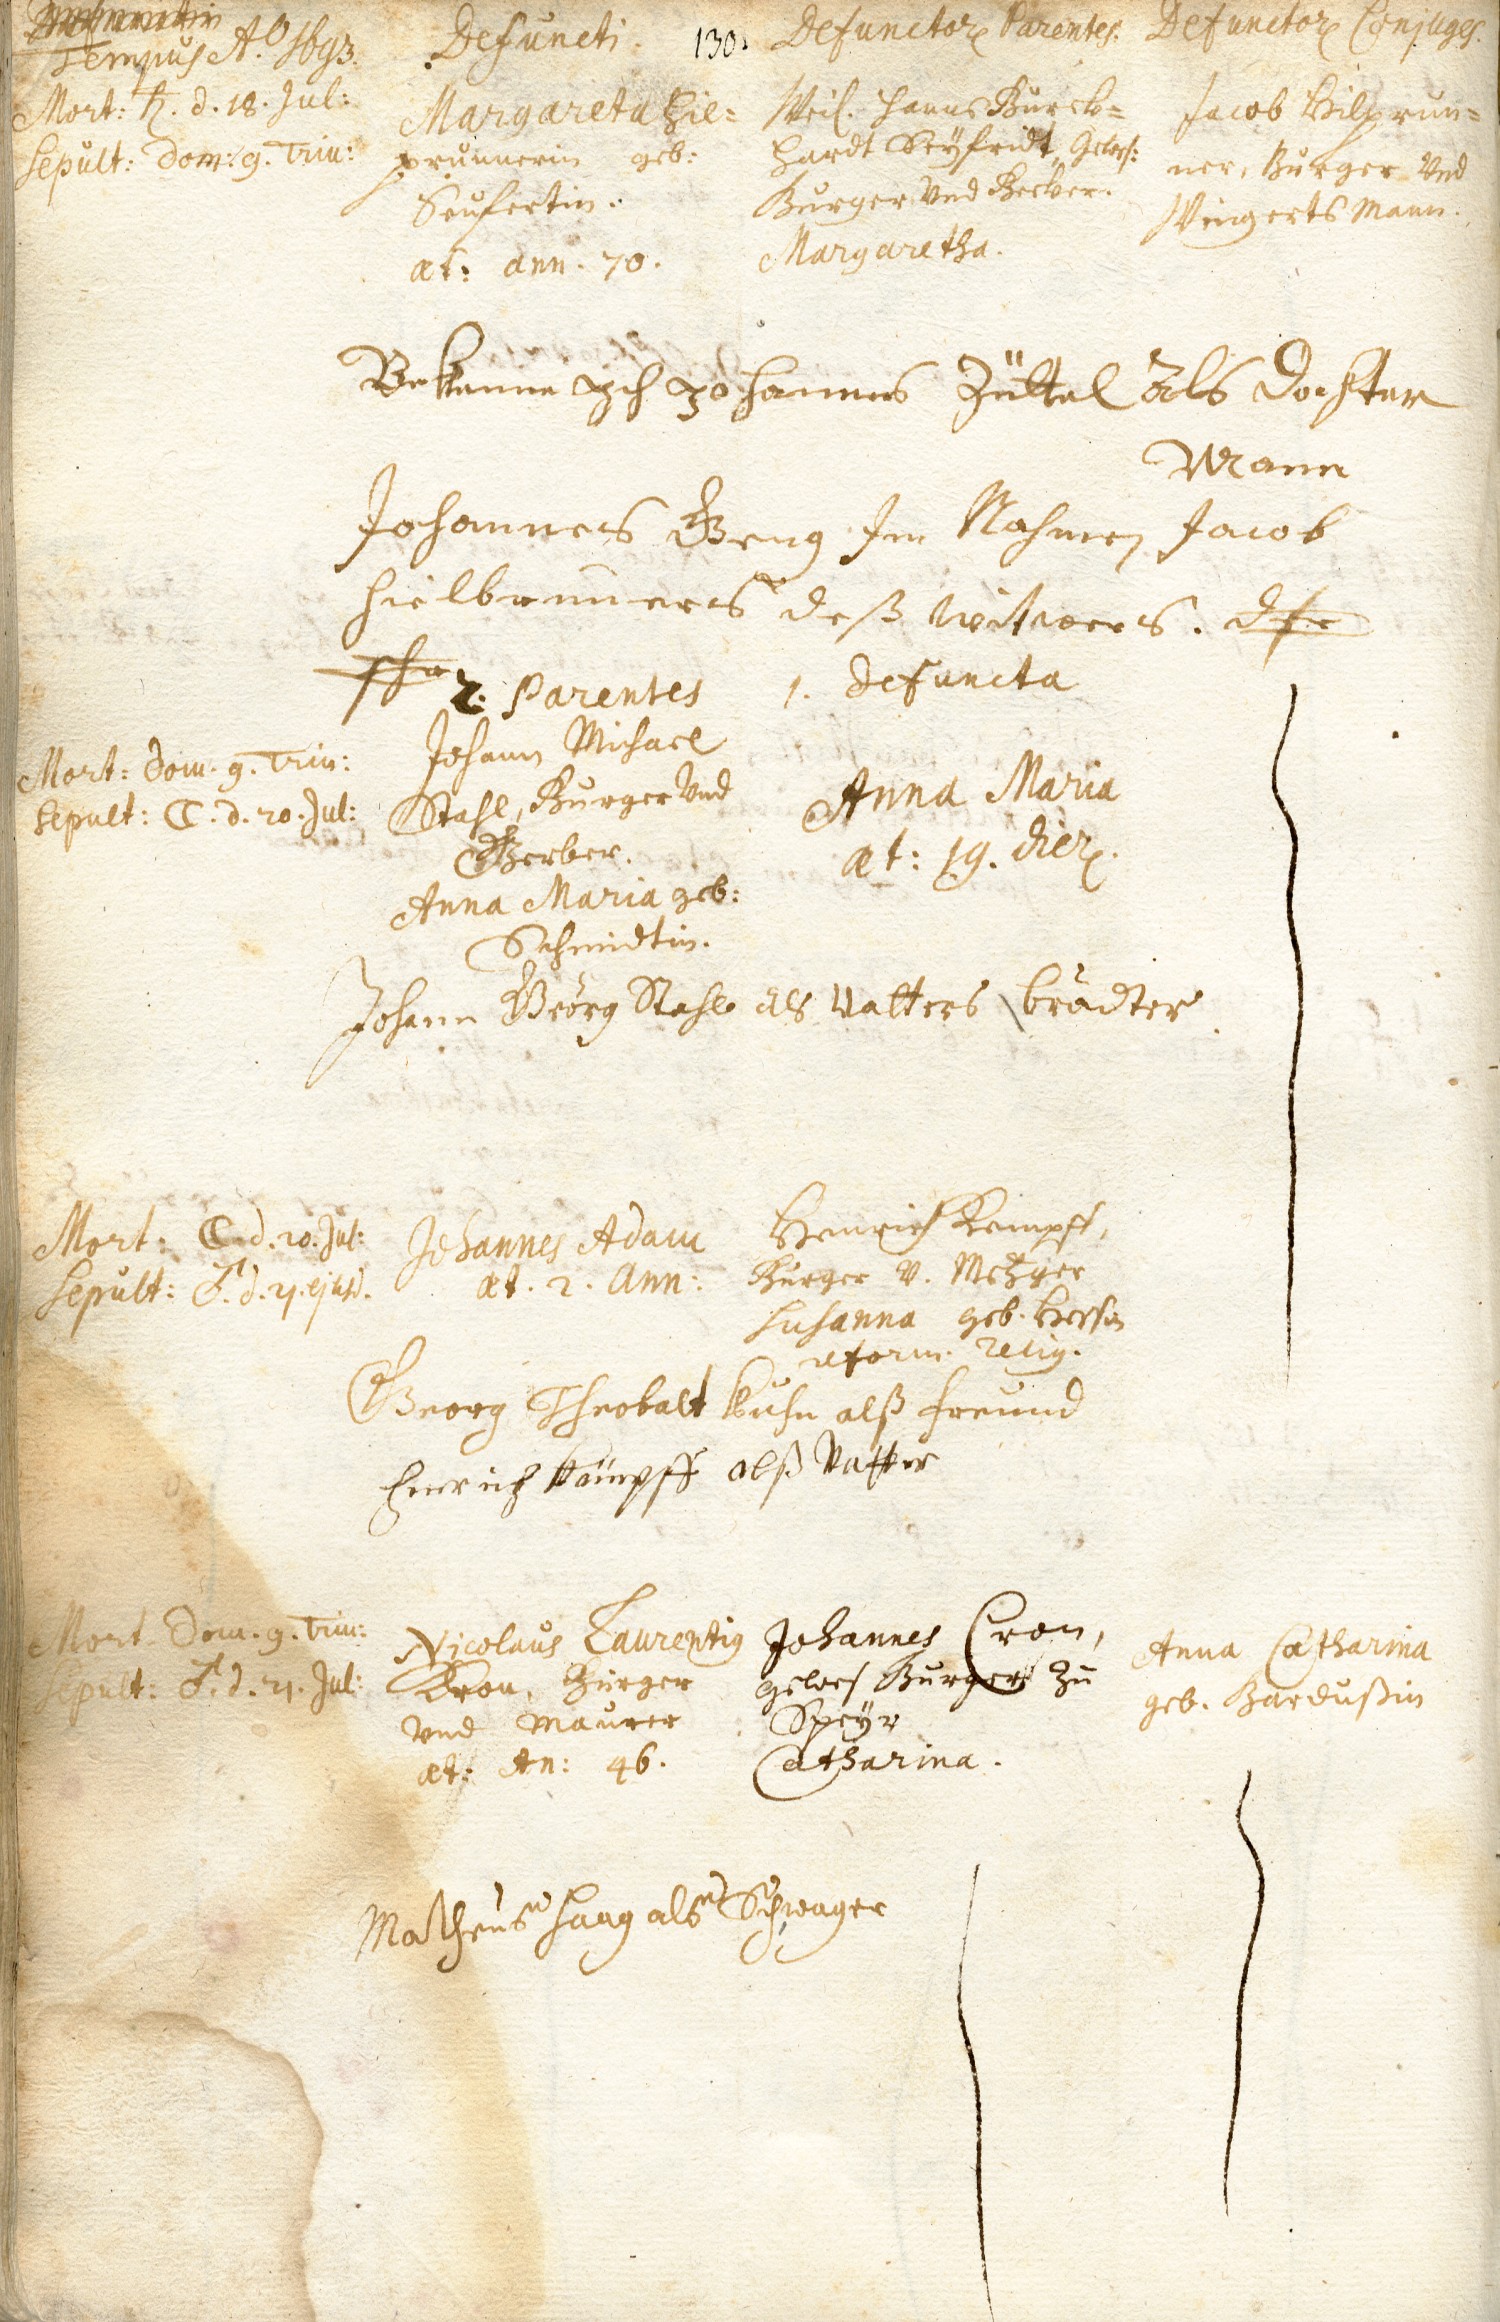 Tempus A.º 1693.
Defuncti.
130.
Defunctor. Parentes.
Defunctor. Conjuges.
Mort: ♄. d. 18. Jul:
Sepult: Dom: 9. Trin:
Margareta Hie=
prunnerin geb:
Seufertin.
æt: ann. 70.
Weil. Hanns Burck=
hardt Seÿfridt, Gewes:
Burger Und Becker.
Margaretha.
Jacob Hilprun=
ner, Burger Und
Wingerts Mann.
Bekenne Ich Johannes Züttel als Dochter
Mann
Johannes Geng Im Nahmen Jacob
Hielbrunners deß Witwers.
2. Parentes
1. Defuncta
Mort: Dom. 9. Trin:
Sepult: ☾. d. 20. Jul:
Johann Michael
Stahl, Burger Und
Gerber.
Anna Maria geb:
Schmidtin.
Anna Maria
æt: 19. dier.
Johann Georg Stahl als Vatters bruder
Mort: ☾. d. 20. Jul:
Sepult: ♂. d. 21. ejusd.
Johannes Adam
æt. 2. Ann:
Henrich Kempff,
Burger V. Metzger
Susanna geb.
reform. relig.
Georg Theobalt Kuhn alß freund
Henrich Kämpff alß Vatter
Mort Dom. 9. Trin:
Sepult: ♂. d. 21. Jul:
Nicolaus Laurentig
Kron, Burger
Und Maurer
æt: An: 46.
Johannes Cron,
gewes Burger zu
Speÿr
Catharina.
Anna Catharina
geb. Bardußin
Matheus Haag als Schwager